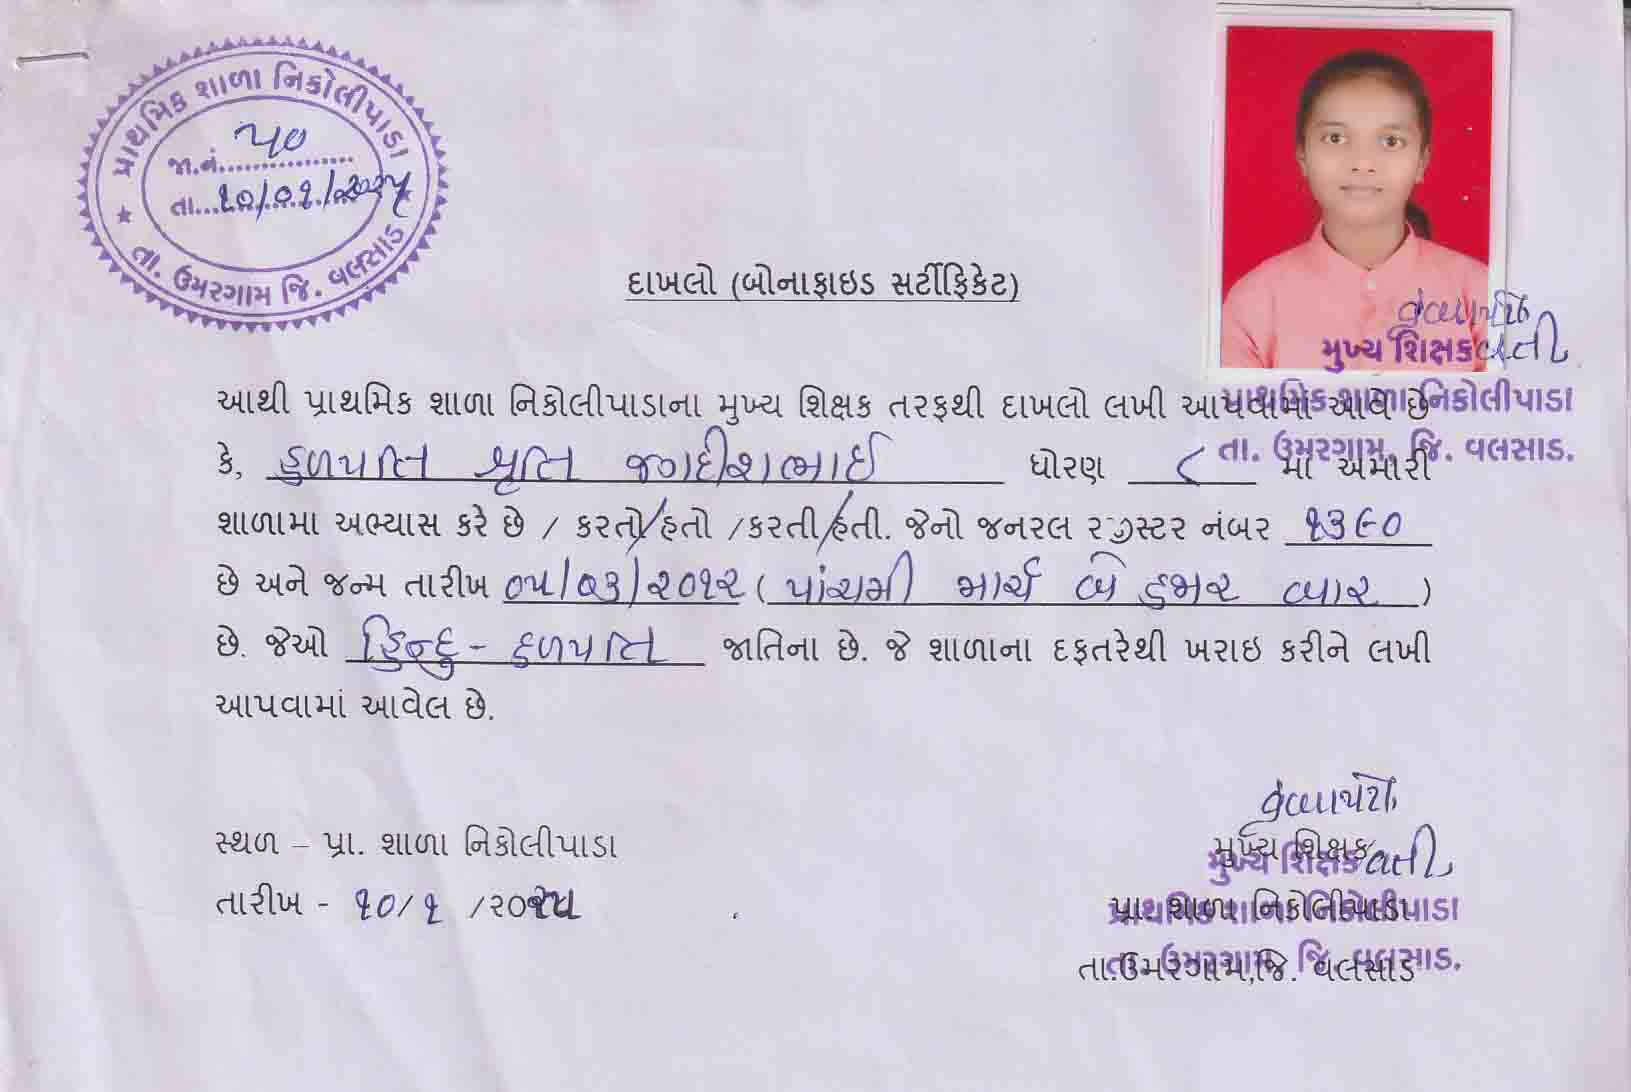 પ્રાથમિક શાળા નિકોલીપાડા
જા.નં. ૫૦
તા. ૧૦/૦૧/૨૦૨૫
તા. ઉમરગામ જિ. વલસાડ
દાખલો (બોનાફાઇડ સર્ટીફિકેટ)
મુખ્ય શિક્ષક વતી
પ્રાથમિક શાળા નિકોલીપાડા
તા. ઉમરગામ, જિ. વલસાડ.
આથી પ્રાથમિક શાળા નિકોલીપાડાના મુખ્ય શિક્ષક તરફથી દાખલો લખી આપવામાં આવે છે
કે, હળપતિ શ્રૃતિ જગદીશભાઈ ધોરણ ૮ માં અમારી
શાળામા અભ્યાસ કરે છે / કરતો/હતો /કરતી/હતી. જેનો જનરલ રજીસ્ટર નંબર ૧૩૯૦
છે અને જન્મ તારીખ ૦૫/૦૩/૨૦૧૨ (પાંચમી માર્ચ બે હજાર બાર)
છે. જેઓ હિન્દુ - હળપતિ જાતિના છે. જે શાળાના દફતરેથી ખરાઇ કરીને લખી
આપવામાં આવેલ છે.
સ્થળ – પ્રા. શાળા નિકોલીપાડા
તારીખ - ૧૦/૧ /૨૦૨૫
મુખ્ય શિક્ષક
મુખ્ય શિક્ષક વતી
પ્રા શાળા નિકોલીપાડા
પ્રાથમિક શાળા નિકોલીપાડા
તા.ઉમરગામ,જિ. વલસાડ
તા. ઉમરગામ, જિ. વલસાડ.